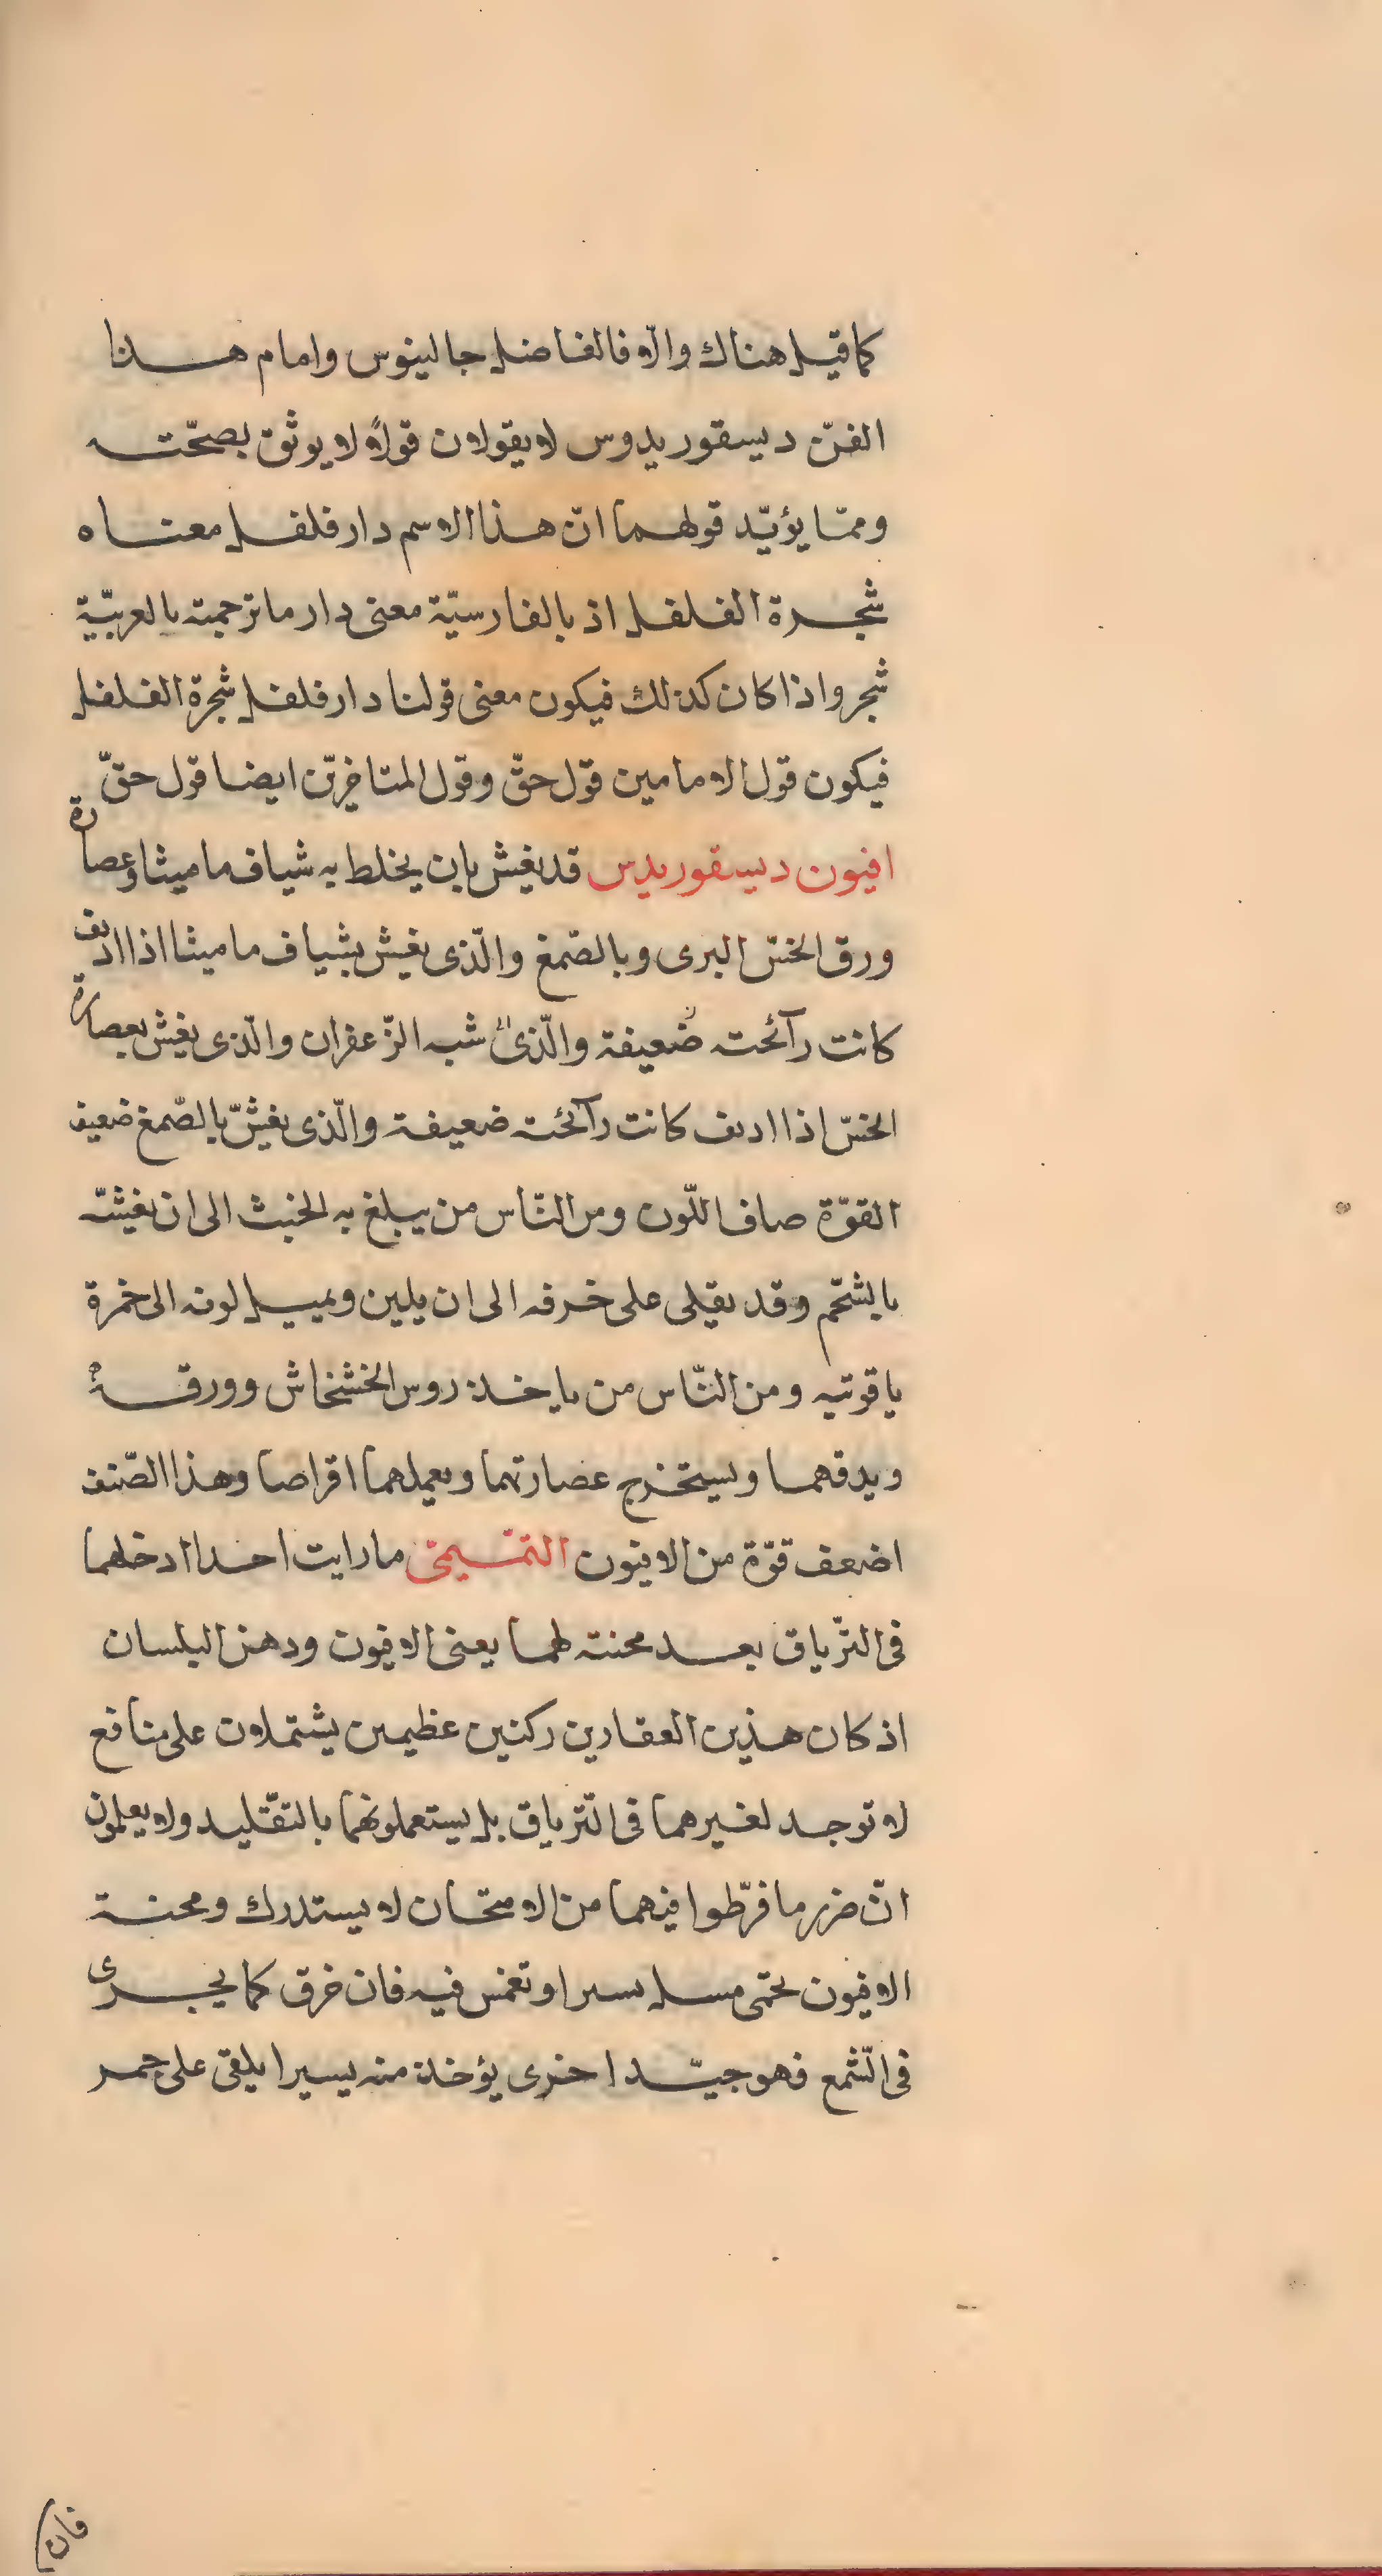 كما قيل هناك والّا فالفاضل جالينوس وامام هذا
الفنّ ديسقوريدوس لا يقولان قولًا لا يوثق بصحّته
وممّا يؤيّد قولهما انّ هذا الاسم دار فلفل معناه
شجرة الفلفل اذ بالفارسيّة معنى دار ما ترجمته بالعربيّة
شجر واذا كان كذلك فيكون معنى قولنا دار فلفل شجرة الفلفل
فيكون قول الامامين قول حقّ وقول المتاخرين ايضا قول حقّ
افيون ديسقوريدس قد يغش بان يخلط به شياف ماميثا وعصارة
ورق الخسّ البرى وبالصّمغ والّذى يغش بشياف ماميثا اذا اديف
كانت رآئحته ضعيفة والّذى شبه الزّعفران والّذى يغش بعصارة
الخسّ اذا اديف كانت رآئحته ضعيفة والّذى يغشّ بالصّمغ ضعيف
القوّة صاف اللّون ومن النّاس من يبلغ به الخبث الى ان يغشّه
بالشّحم وقد يقلى على خزفه الى ان يلين ويميل لونه الى خمرة
ياقوتيه ومن النّاس من ياخذ روس الخشخاش وورقه
ويدقهما ويستخرج عصارتهما ويعملهما اقراصا وهذا الصّنف
اضعف قوّة من الافيون التّميمى ما رايت احدا ادخلهما
فى التّرياق بعد محنته لهما يعنى الافيون ودهن البلسان
اذ كان هذين العقارين ركنين عظيمين يشتملان على منافع
لا توجد لغيرهما فى التّرياق بل يستعملونهما بالتقليد ولا يعلمون
انّ ضرر ما فرّطوا فيهما من الامتحان لا يستدرك ومحنة
الافيون يحمى يسيرا وتغمس فيه فان خرق كما يجرى
فى الشّمع فهو جيّد اخرى يؤخذ منه يسيرا يلقى على جمر
فان